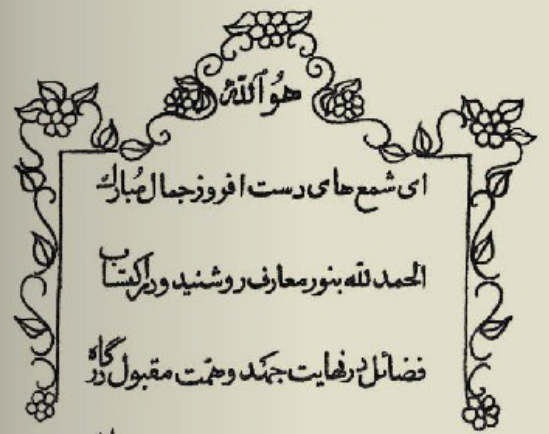 هُوَاللّٰه
ای شمع های دست افروز جمال مُبارك
الحمدلله بنور معارف روشنید و در اکتساب
فضائل در نهایت جهد و همّت مقبول درگاه